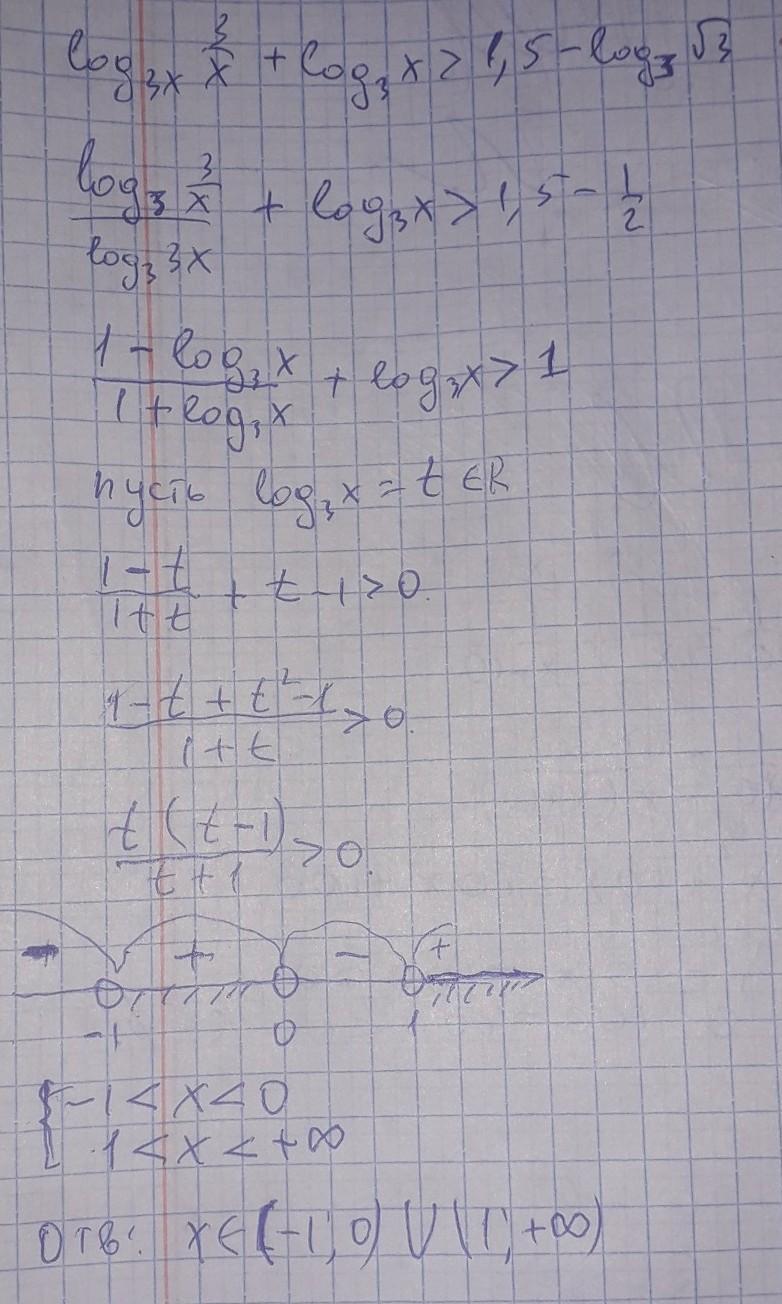 log₃ₓ 3/x + log₃ x > 1,5 - log₃ √3
log₃ 3/x / log₃ 3x + log₃ x > 1,5 - 1/2
1 - log₃ x / 1 + log₃ x + log₃ x > 1
пусть log₃ x = t ∈ R
1 - t / 1 + t + t - 1 > 0.
1 - t + t² - 1 / 1 + t > 0.
t (t - 1) / t + 1 > 0.
- + - +
-1 0 1
-1 < x < 0
1 < x < +∞
Отв: x ∈ (-1; 0) ∪ (1; +∞)